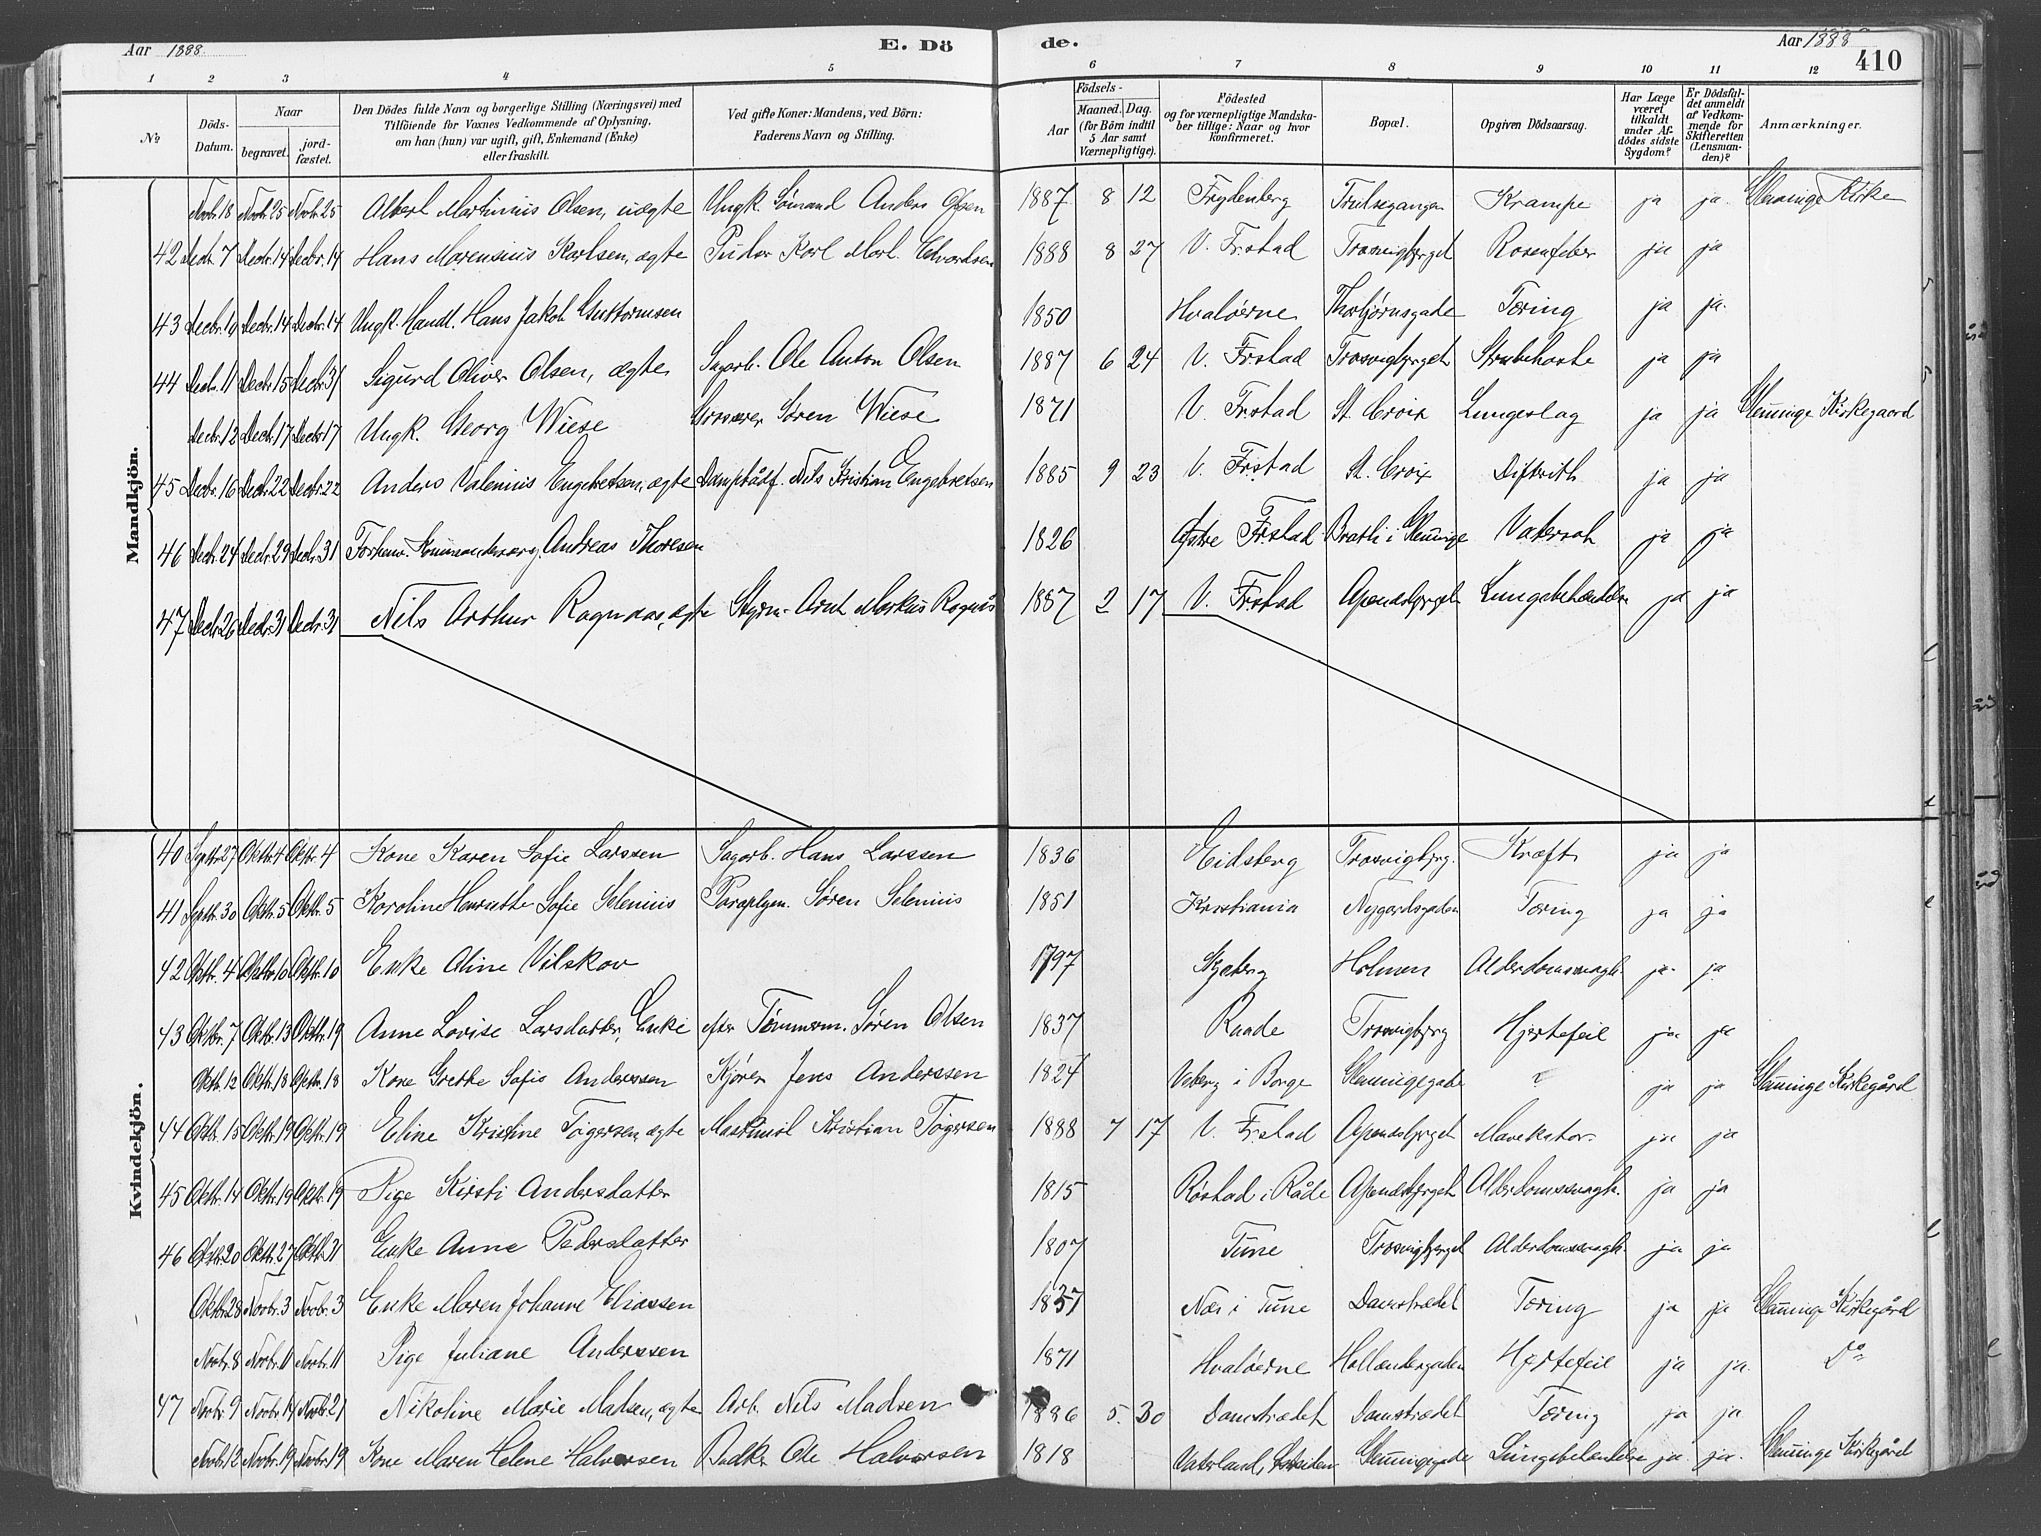 Aar 1888
E. Dö
de.
Aar 1888
410
1 2 3 4 5 6 7 8 9 10 11 12
No
Döds-Datum.
Naar
begravet.
jord-fæstet.
Den Dödes fulde Navn og borgerlige Stilling (Næringsvei) med
Tilföiende for Voxnes Vedkommende af Oplysning,
om han (hun) var ugift, gift, Enkemand (Enke)
eller fraskilt.
Ved gifte Koner: Mandens, ved Börn:
Faderens Navn og Stilling.
Födsels-
Aar
Maaned. Dag.
(for Börn indtil
5 Aar samt
Værnepligtige).
Födested
og for værnepligtige Mandska-
ber tillige: Naar og hvor
konfirmeret.
Bopæl.
Opgiven Dödsaarsag.
Har Læge
været
tilkaldt
under Af-
dödes sidste
Sygdom?
Er Dödsfal-
det anmeldt
af Vedkom-
mende for
Skifteretten
(Lensman-
den)?
Anmærkninger.
Mandkjön.
Novbr. 18 Novbr. 25 Novbr. 25 Albert Martinius Olsen, uægte Ungk. Sömand Anders Olsen 1887 8 12 Frydenberg Trulsegangen Krampe ja ja. Glemminge Kirke
42 Decbr. 7 Decbr. 14 Decbr. 14 Hans Marensius Karlsen, ægte Karl Mart. Edvardsen 1888 8 27 V. Fr.stad Trosvigbjerget Rosenfeber ja ja
43 Decbr. 10 Decbr. 14 Decbr. 14 Ungk. Handl. Hans Jakob Guttormsen 1850 Hvaløerne Thorbjørnsgade Tæring ja ja.
44 Decbr. 11 Decbr. 15 Decbr. 31 Sigurd Oliver Olsen, ægte Sagarb. Ole Anton Olsen 1887 6 24 V. Fr.stad Trosvigbjerget Strubehoste ja ja
Decbr. 12 Decbr. 17 Decbr. 17 Ungk. Georg Wiese Grosserer Søren Wiese 1871 V. Fr.stad St. Croix Lungeslag ja ja Glemminge Kirkegaard
45 Decbr. 16 Decbr. 22 Decbr. 22 Anders Valenius Engebretsen, ægte Dampbådf. Nils Kristian Engebretsen 1885 9 23 V. Fr.stad St. Croix Difterith ja ja
46 Decbr. 24 Decbr. 29 Decbr. 31 Andreas Thoresen 1826 Østre Fr.stad Bratli i Glemminge Vatersot ja ja
47 Decbr. 26 Decbr. 31 Decbr. 31 Nils Arthur Rognaas, ægte Styrm. Arnt Markus Rognås 1887 2 17 V. Fr.stad Apenæsbjerget Lungebetændelse ja ja
Kvindekjön.
40 Septbr. 27 Oktbr. 4 Oktbr. 4 Kone Karen Sofie Larssen Sagarb. Hans Larssen 1836 Eidsberg Trosvigbjerg. Kræft ja ja
41 Septbr. 30 Oktbr. 5 Oktbr. 5 Karoline Henriette Sofie Selenius Paraplym. Søren Selenius 1851 Kristiania Nygaardsgaden Tæring ja ja
42 Oktbr. 4 Oktbr. 10 Oktbr. 10 Enke Aline Vilskov 1797 Skjeberg Holmen Alderdomssvagh. ja ja
43 Oktbr. 7 Oktbr. 13 Oktbr. 19 Anne Lovise Larsdatter, Enke efter Tømmerm. Søren Olsen 1837 Raade Trosvigbjerg Hjertefeil ja ja
Oktbr. 12 Oktbr. 18 Oktbr. 18 Kone Grethe Sofie Anderssen Kjører Jens Anderssen 1824 i Borge Glemmingegade ? ja ja Glemminge Kirkegård
44 Oktbr. 15 Oktbr. 19 Oktbr. 19 Eline Kristine Tøgersen, ægte Maskinist Kristian Tøgersen 1888 7 17 V. Fr.stad Apenæsbjerget Mavekatar. ja ja
45 Oktbr. 14 Oktbr. 19 Oktbr. 19 Pige Kirsti Andersdatter 1815 Røstad i Råde Apenæsbjerget Alderdomssvagh. ja ja
46 Oktbr. 20 Oktbr. 27 Oktbr. 31 Enke Anne Pedersdatter 1807 Tune Trosvigbjerget Alderdomssvagh. ja ja
Oktbr. 28 Novbr. 3 Novbr. 3 Enke Maren Johanne Eliassen 1837 Næs i Tune Damstrædet Tæring ja ja Glemminge Kirkegård
Novbr. 8 Novbr. 11 Novbr. 11 Pige Juliane Anderssen 1871 Hvaløerne Hollændergaden Hjertefeil ja ja. Do
47 Novbr. 9 Novbr. 14 Novbr. 21 Nikoline Marie Madsen, ægte Arb. Nils Madsen 1886 5. 30 Damstrædet Damstrædet Tæring ja ja
Novbr. 12 Novbr. 19 Novbr. 19 Kone Maren Helene Halvorsen Ole Halvorsen 1818 Vaterland, Glemmingegade Lungebetændelse ja ja. Glemminge Kirkegård